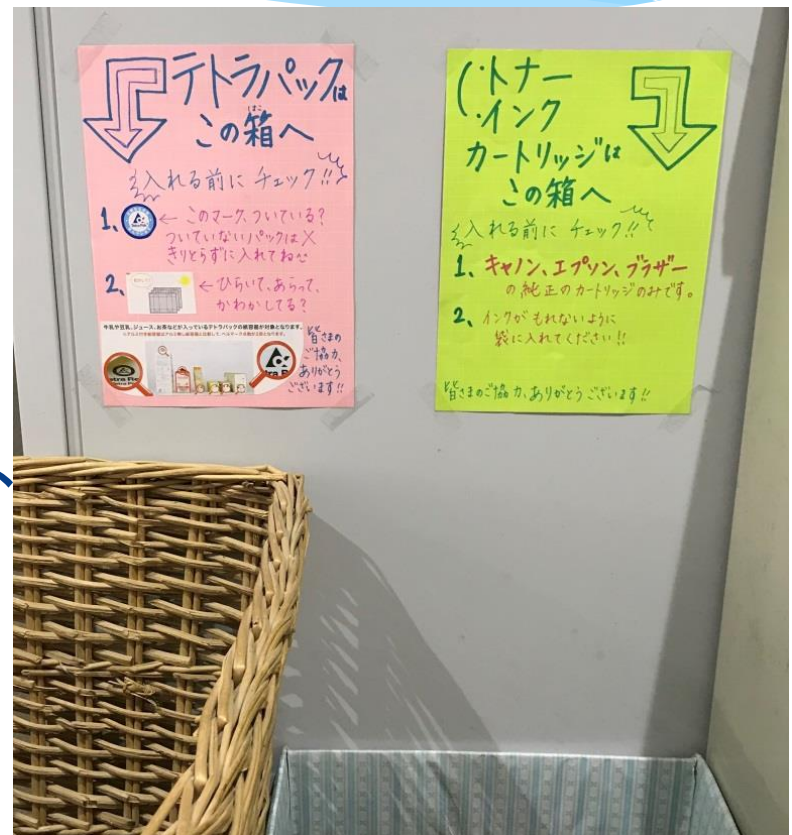 テトラパックは
この箱へ
はこ
入れる前に チェック!!
1、
← このマーク、ついている?
ついていないパックは×
きりとらずに入れてね
2、
← ひらいて、あらって、
かわかしてる?
牛乳や豆乳、ジュース、お茶などが入っているテトラパックの紙容器が対象となります。
皆さまの
ご協力、
ありがとう
ございます!!
・トナー
・インク
カートリッジは
この箱へ
入れる前に チェック!!
1、キャノン、エプソン、ブラザー
の純正のカートリッジのみです。
2、インクがもれないように
袋に入れてください!!
皆さまのご協力、ありがとうございます!!